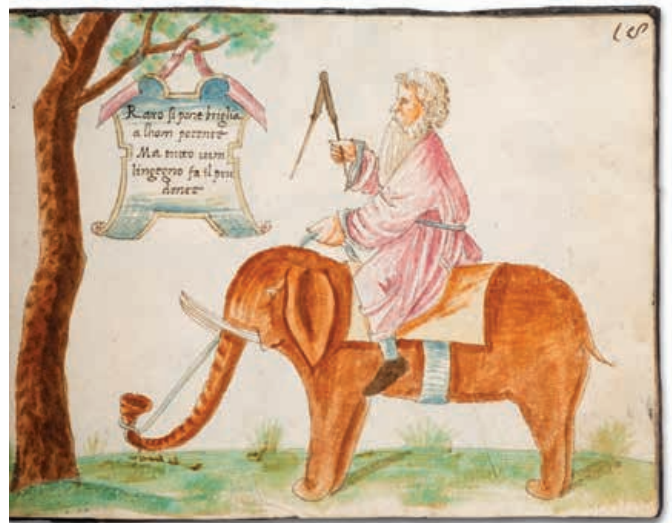 18
Raro si pone briglia
a lhom potente
Ma tutto vim
lingegno fa il pru
dente